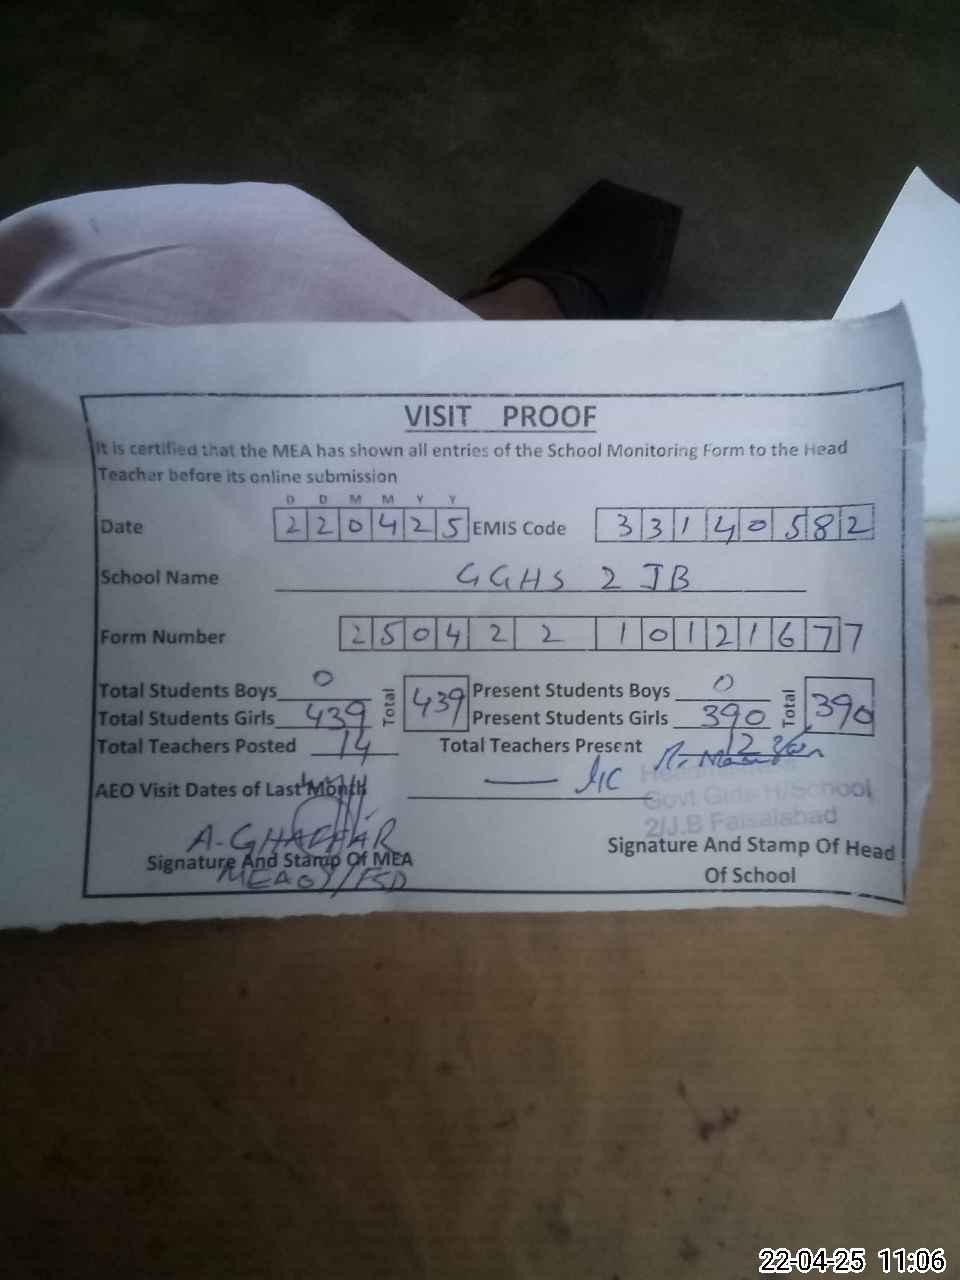 VISIT PROOF
It is certified that the MEA has shown all entries of the School Monitoring Form to the Head
Teacher before its online submission
D D M M Y Y
Date 2 2 0 4 2 5 EMIS Code 3 3 1 4 0 5 8 2
School Name GGHS 2 JB
Form Number 2 5 0 4 2 2 1 0 1 2 1 6 7 7
Total Students Boys 0 Total 439 Present Students Boys 0 Total 390
Total Students Girls 439 Present Students Girls 390
Total Teachers Posted 14 Total Teachers Present 12
AEO Visit Dates of Last Month
Govt Girls H/School
2/J.B Faisalabad
A-GHAFFAR
Signature And Stamp Of MEA Signature And Stamp Of Head
Of School
22-04-25 11:06